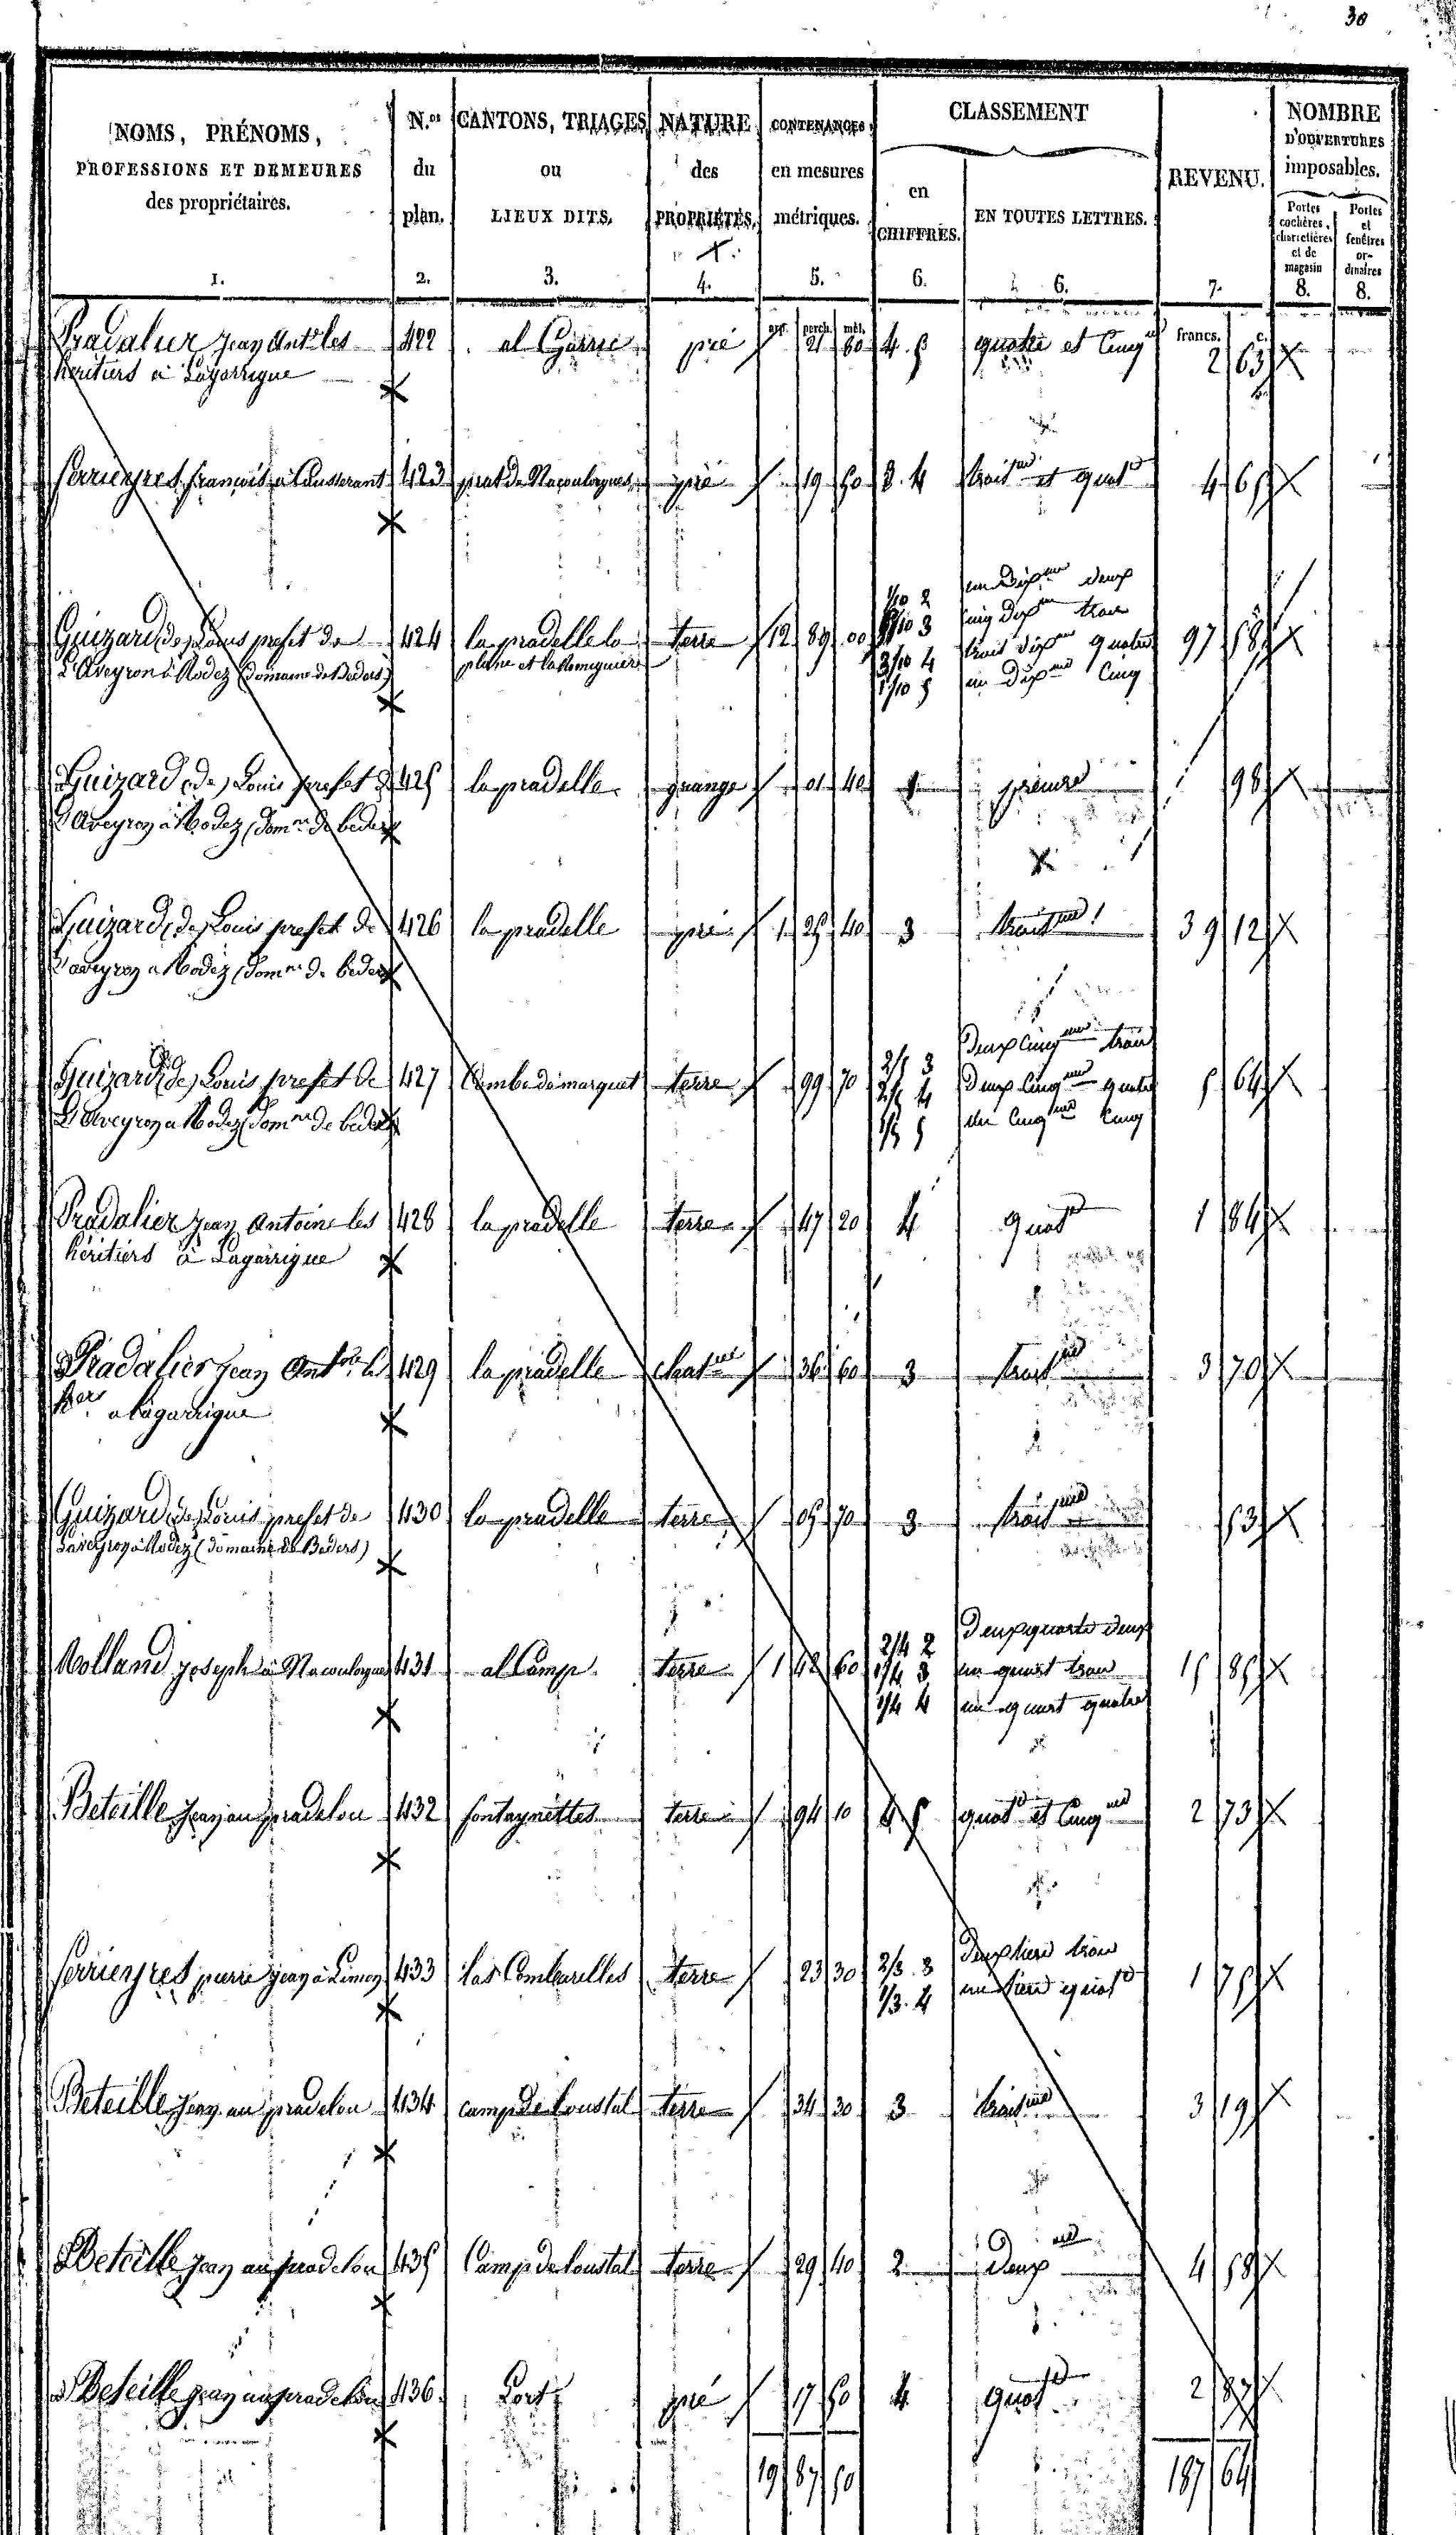 30
NOMS, PRÉNOMS, PROFESSIONS ET DEMEURES des propriétaires. 1.
N.os du plan. 2.
CANTONS, TRIAGES ou LIEUX DITS. 3.
NATURE des PROPRIÉTÉS. 4.
CONTENANCES en mesures métriques. 5.
CLASSEMENT
en CHIFFRES. 6.
EN TOUTES LETTRES. 6.
REVENU. 7.
NOMBRE D'OUVERTURES imposables.
Portes cochères, charretières et de magasin 8.
Portes et fenêtres ordinaires 8.
arp. perch. mèt. francs. c.
Pradalier Jean Ant.e les 422 al pré 21 60 4.5 quatre et Cinq 2 63
héritiers à Lagarrigue
ferrieyres françois à 423 prat de Nacoulorgues pré 19 50 3.4 trois et quat 4 65
1/10 2 un dix deux
5/10 3 cinq dix trois
Guizard (de) Louis prefet de 424 la pradelle la terre 12 89 00 3/10 4 trois dix quatre 97 58
L'Aveyron à Rodez (domaine de Beders) plane et la 1/10 5 un dix Cinq
Guizard (de) Louis prefet de 425 la pradelle grange 01 40 1 98
l'Aveyron à Rodez (dom.ne de beders
Guizard (de) Louis prefet de 426 la pradelle pré 1 25 40 3 trois 39 12
l'aveyron a Rodez (dom.ne de beders
2/5 3 Deux Cinq trois
Guizard (de) Louis prefet de 427 Combe de marquet terre 99 70 2/5 4 deux Cinq quatre 5 64
L'Aveyron a Rodez (dom.ne de beders 1/5 5 un Cinq Cinq
Pradalier Jean Antoine les 428 la pradelle terre 47 20 4 quat 1 84
héritiers à Lagarrigue
Pradalier Jean Ant.ne les 429 la pradelle chat 36 60 3 trois 3 70
h.ers a lagarrigue
Guizard (de) Louis prefet de 430 la pradelle terre 05 70 3 trois 53
L'aveyron à Rodez (domaine de Beders)
2/4 2 Deux quarts deux
Rolland joseph à Nacoulorgues 431 al Camp terre 1 42 60 1/4 3 un quart trois 15 85
1/4 4 un quart quatre
Beteille Jean au pradelou 432 fontaynettes terre 94 10 4.5 quat et Cinq 2 73
ferrieyres pierre Jean à Limon 433 las Combarelles terre 23 30 2/3.3 Deux tiers trois 1 75
1/3.4 un tiers quat
Beteille Jean au pradelou 434 camp de Loustal terre 34 30 3 trois 3 19
Beteille Jean au pradelou 435 Camp de Loustal terre 29 40 2 deux 4 58
Beteille Jean au pradelou 436 Lort pré 17 50 4 quat 2 87
19 87 50 187 64